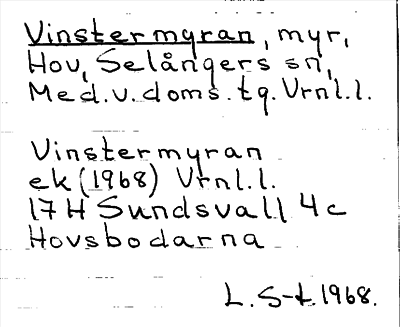 Vinstermyran, myr,
Hov, Selångers sn,
Med.v.doms.tg. Vrnl.l.
Vinstermyran
ek (1968) Vrnl.l.
17 H Sundsvall 4c
Hovsbodarna
L. S-t. 1968.